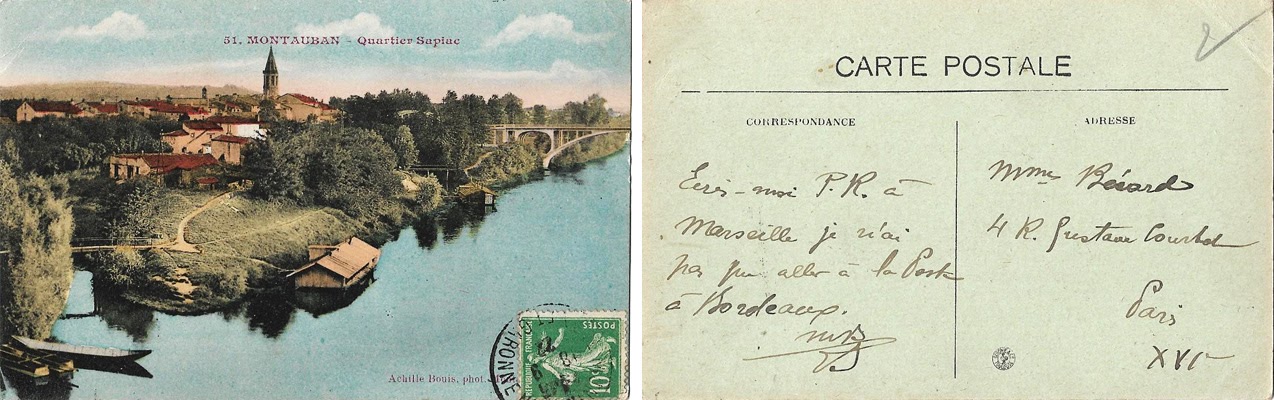 51. MONTAUBAN - Quartier Sapiac
Achille Bouis, phot.
GIRONNE
POSTES
RÉPUBLIQUE FRANÇAISE
10c
2
CARTE POSTALE
CORRESPONDANCE
ADRESSE
Ecris-moi P.R. à
Marseille je n'ai
pas pu aller à la Poste
à Bordeaux.
MB
Mme Bérard
4 R. Gustave Courbet
Paris
XVIe